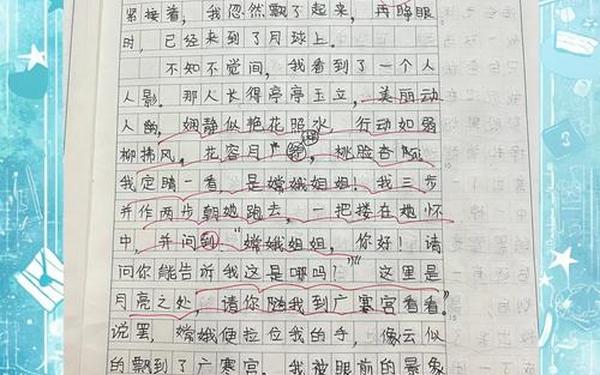 紧接着，我忽然飘了起来，再睁眼
时，已经来到了月球上。
不知不觉间，我看到了一个人
人影。那人长得亭亭玉立，美丽动
人，娴静似艳花照水，行动如弱
柳拂风，花容月，桃脸杏
我定睛一看，是嫦娥姐姐！我三步
并作两步朝她跑去，一把搂在她怀
中，并问到“嫦娥姐姐，你好！请
问你能告诉我这是哪吗？”“这里是
月亮之处，请你随我到广寒宫看看。”
说罢，嫦娥便拉位我的手，像云似
的飘到了广寒宫。我被眼前的景象